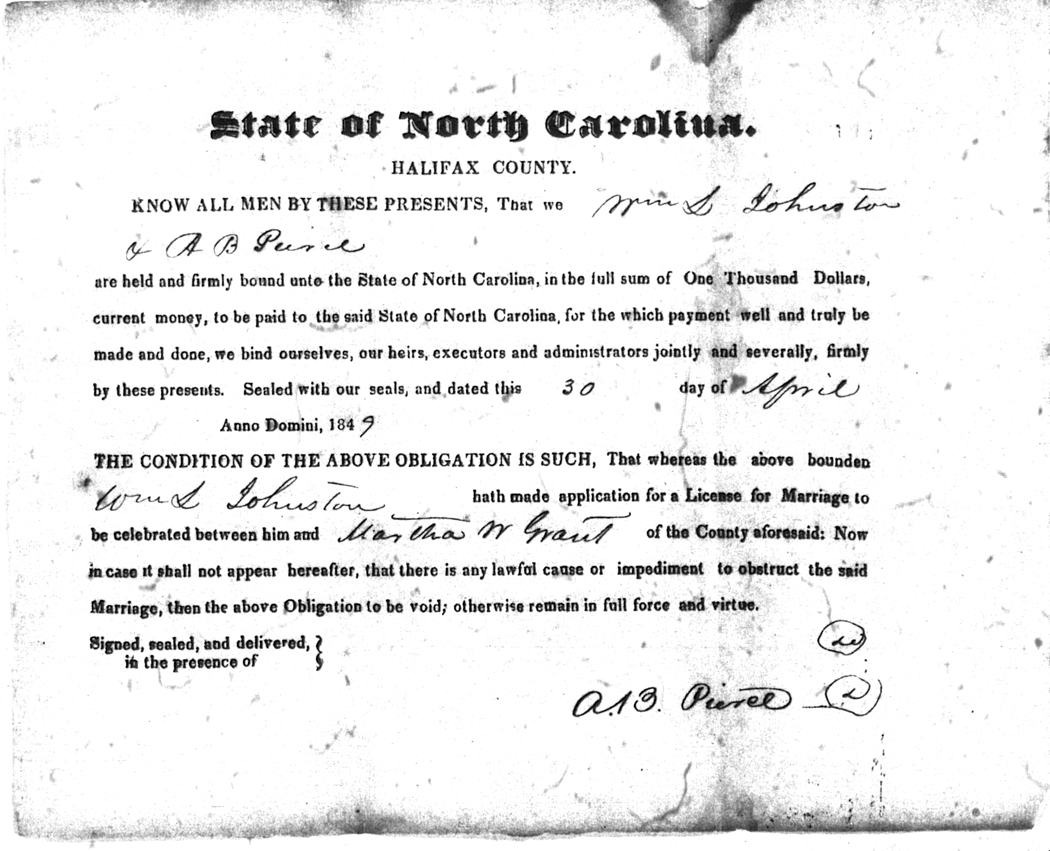 State of North Carolina.
HALIFAX COUNTY.
KNOW ALL MEN BY THESE PRESENTS, That we Wm S Johnston
& A B Pierce
are held and firmly bound unto the State of North Carolina, in the full sum of One Thousand Dollars,
current money, to be paid to the said State of North Carolina, for the which payment well and truly be
made and done, we bind ourselves, our heirs, executors and administrators jointly and severally, firmly
by these presents. Sealed with our seals, and dated this 30 day of April
Anno Domini, 1849
THE CONDITION OF THE ABOVE OBLIGATION IS SUCH, That whereas the above bounden
Wm S Johnston hath made application for a License for Marriage to
be celebrated between him and Martha W Grant of the County aforesaid: Now
in case it shall not appear hereafter, that there is any lawful cause or impediment to obstruct the said
Marriage, then the above Obligation to be void; otherwise remain in full force and virtue.
Signed, sealed, and delivered,
in the presence of
A.B. Pierce